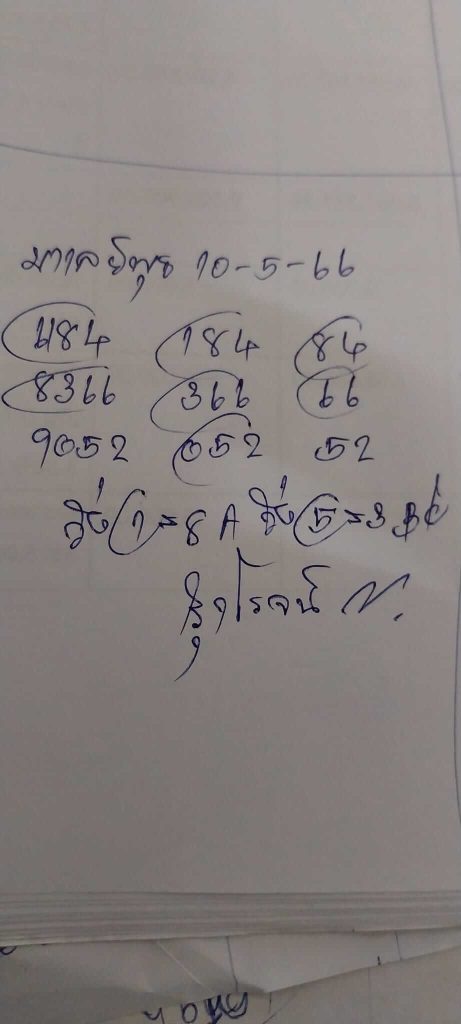 มาเลย์พุธ 10-5-66
4184 184 84
8366 366 66
9052 052 52
วิ่ง 1=8 A วิ่ง 5=3